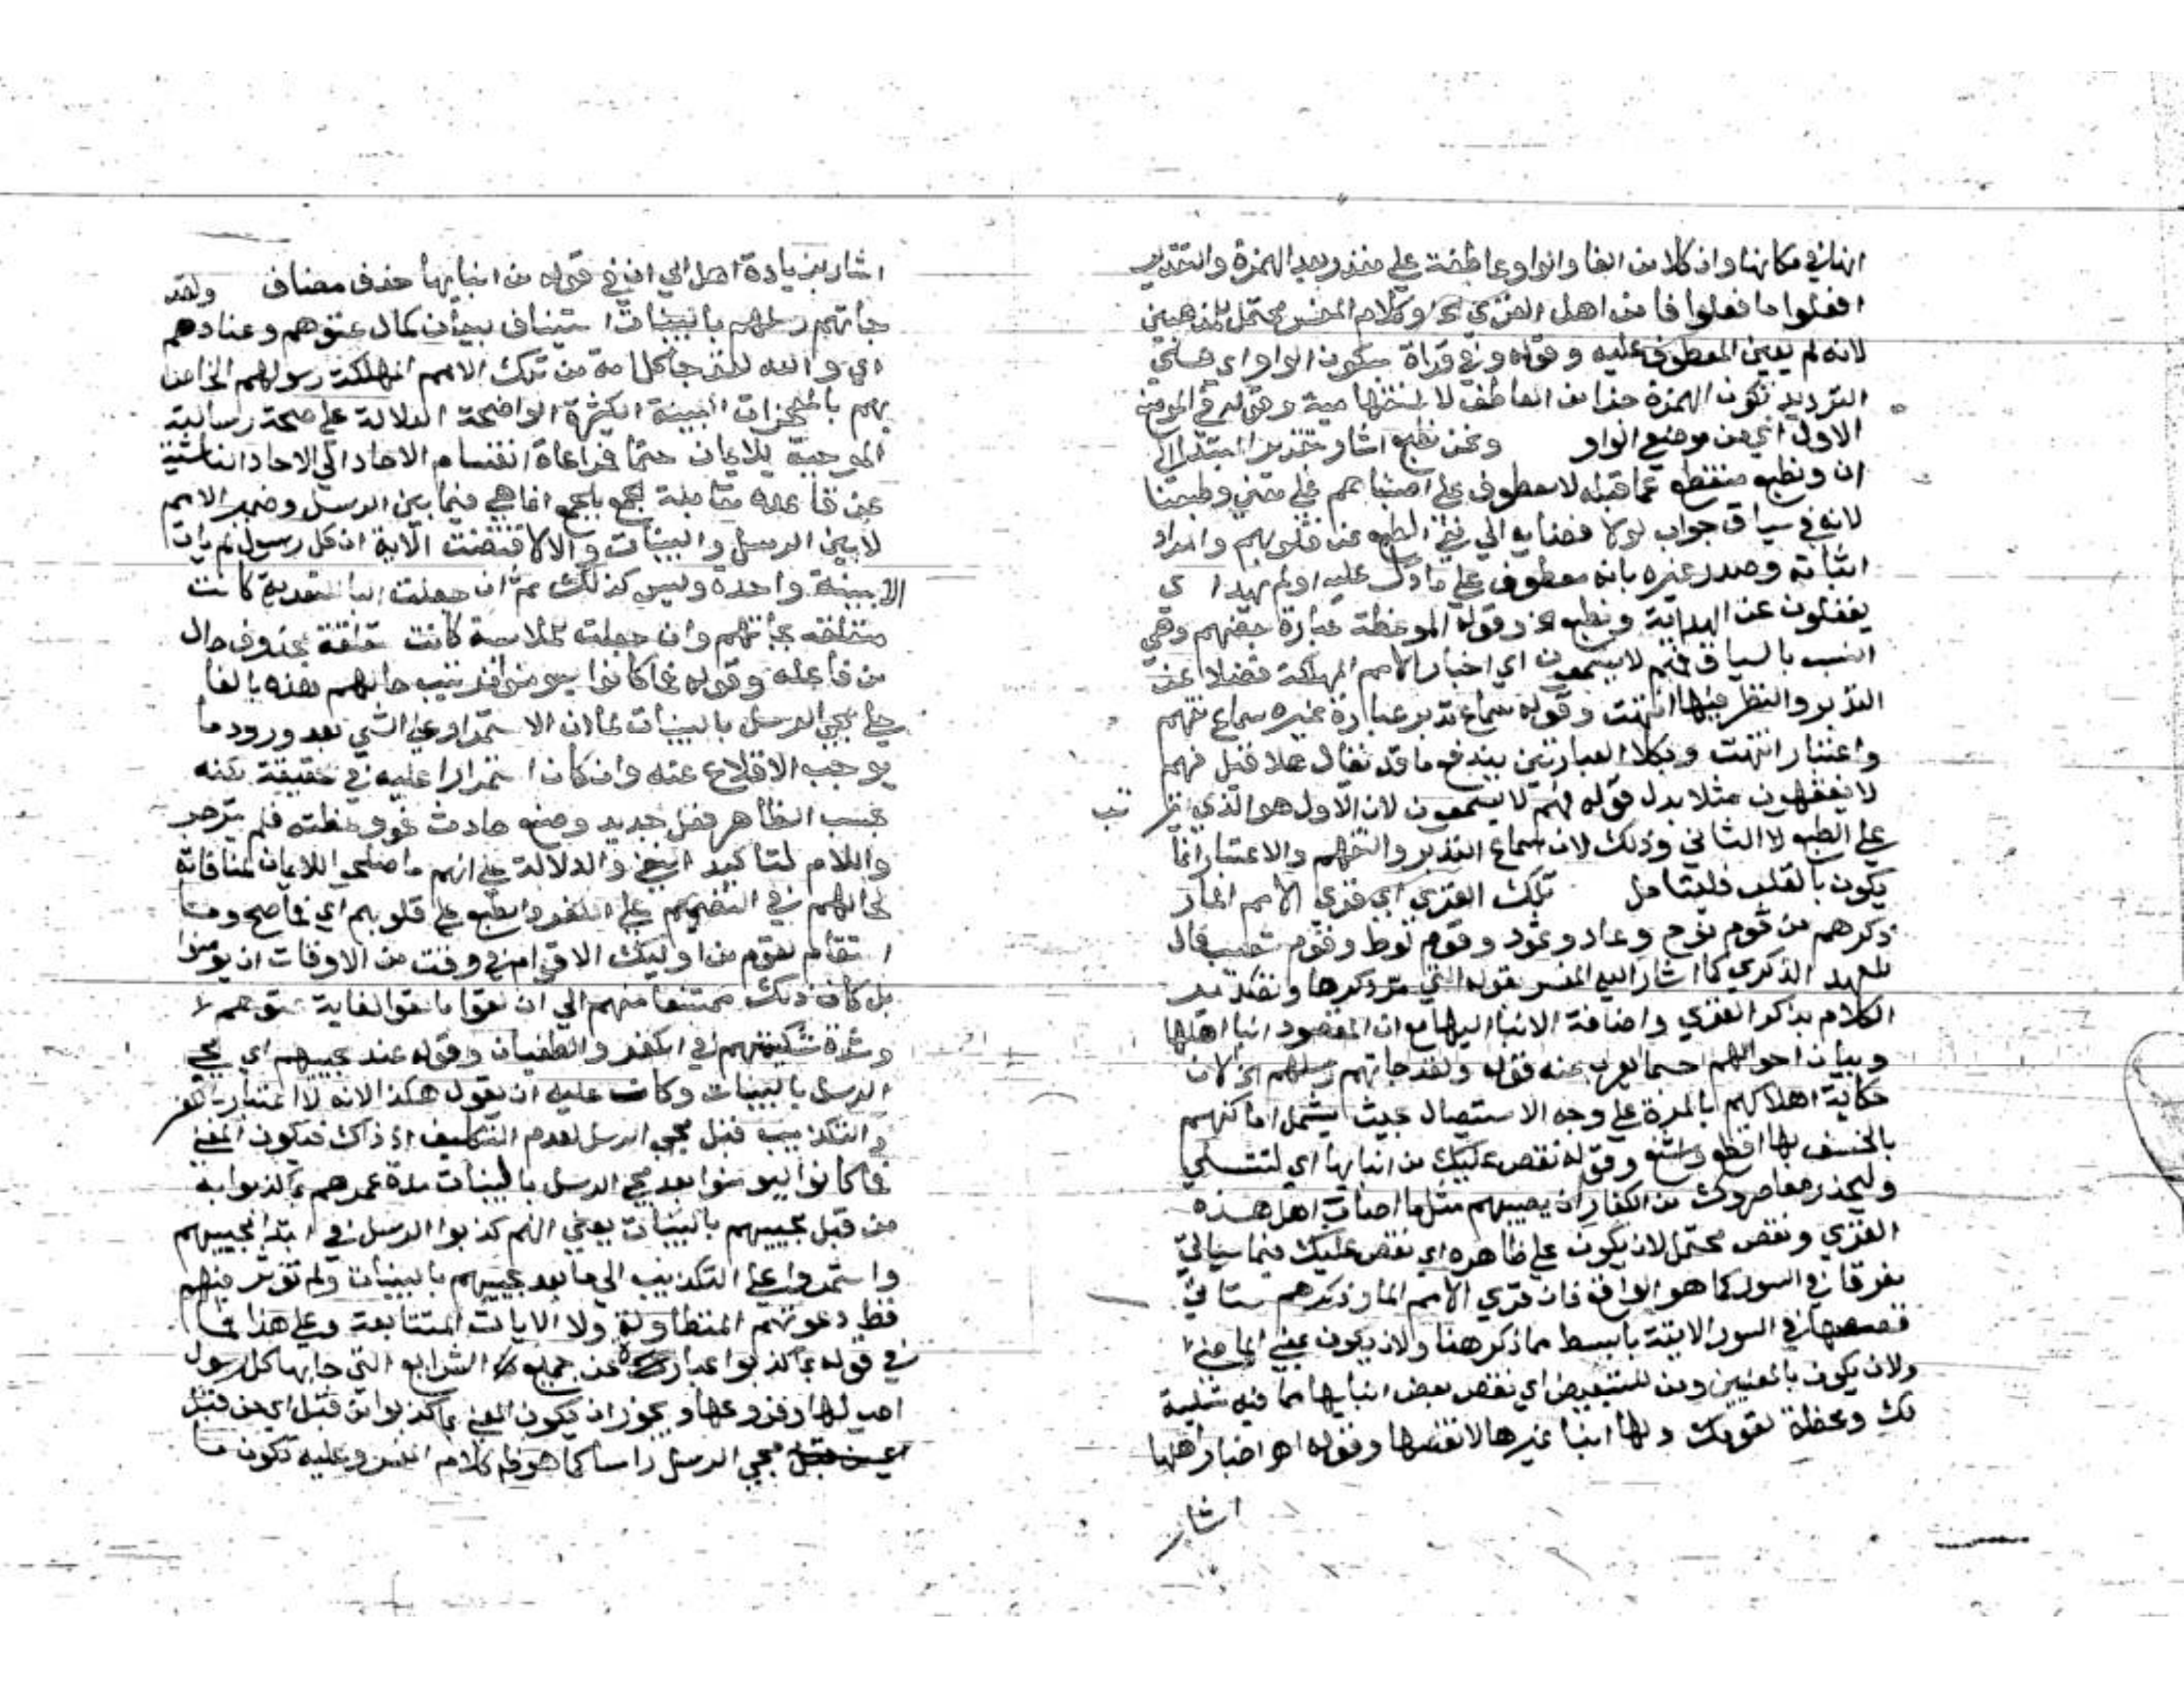 انها في مكانها وان كلا من الفا والواو عاطفة علي مقدر بعد الهمزة والتقدير
افعلوا ما فعلوا فامن اهل القري الخ وكلام المفسر محتمل للمذهبين
لانه لم يعين المعطوف عليه وقوله وفي قراة بسكون الواو اي فعلي
الترديد تكون الهمزة جزا من العاطف لا استفهامية وقوله في الموضعين
الاول اي من موضع الواو ونحن نطبع اشار بتقدير المبتدا الي
ان ونطبع منقطع عما قبله لا معطوف علي اصبناهم علي معني وطبعنا
لانه في سياق جواب لو لا فضايه الي نفي الطبع عن قلوبهم والمراد
اثباته وصدر غيره بانه معطوف علي ما دل عليه اولم يهد اي
يغفلون عن الهداية ونطبع الخ وقوله الموعظة عبارة بعضهم وهي
انسب بالسياق فهم لا يسمعون اي اخبار الامم المهلكة فضلا عن
التدبر والنظر فيها انتهت وقوله سماع تدبر عبارة غيره سماع تفهم
واعتبار انتهت وبكلا العبارتين يندفع ما قد يقال هلا قيل فهم
لا يفقهون مثلا بدل قوله فهم لا يسمعون لان الاول هو الذي يترتب
علي الطبع لا الثاني وذلك لان سماع التدبر والتفهم والاعتبار انما
يكون بالقلب فليتامل تلك القري اي قري الامم المار
ذكرهم من قوم نوح وعاد وثمود وقوم لوط وقوم شعيب فال
للعهد الذكري كما اشار اليه المفسر بقوله التي مر ذكرها وتصدير
الكلام بذكر القري واضافة الانبا اليها مع ان المقصود انبا اهلها
وبيان احوالهم حسما يعرب عنه قوله ولقد جاتهم رسلهم الخ لان
حكاية اهلاكهم بالمرة علي وجه الاستيصال بحيث يشمل اماكنهم
بالخسف بها افظع واشنع وقوله نقص عليك من انبايها اي لتتسلي
وليحذر معاصروك من الكفار ان يصيبهم مثل ما اصاب اهل هذه
القري ونقص محتمل لان يكون علي ظاهره اي نقص عليك فيما سياتي
مفرقا في السور كما هو الواقع فان قري الامم المار ذكرهم ستاتي
قصصها في السور الاتية بابسط مما ذكر هنا ولان يكون بمعني الماضي
ولان يكون بالمعنيين ومن للتبعيض اي نقص بعض انبايها مما فيه تسلية
لك وعظة لقومك ولها انبا غيرها لا نقصها وقوله اهو اخبار اهلها
اشار
اشار بزيادة اهل الي ان في قوله من انبايها حذف مضاف ولقد
جاتهم رسلهم بالبينات استيناف ببيان كمال عتوهم وعنادهم
اي والله لقد جا كل امة من تلك الامم المهلكة رسولهم الخاص
بهم بالمعجزات البينة الكثيرة الواضحة الدلالة علي صحة رسالته
الموجبة للايمان حتما فمراعاة انقسام الاحاد الي الاحاد الناشئة
عن قاعدة مقابلة الجمع بالجمع انما هي فيما بين الرسل وضمير الامم
لا بين الرسل والبينات والا لاقتضت الاية ان كل رسول لم يات
الا ببينة واحدة وليس كذلك ثم ان جعلت البا للتعدية كانت
متعلقة بجاتهم وان جعلت للملابسة كانت متعلقة بمحذوف حال
من فاعله وقوله فما كانوا ليومنوا قد تيب حالهم هذه بالفا
علي مجي الرسل بالبينات لما ان الاستمرار علي الشي بعد ورود ما
يوجب الاقلاع عنه وان كان استمرارا عليه في حقيقة لكنه
بحسب الظاهر فعل جديد وصنع حادث نحو وعظته فلم ينزجر
واللام لتاكيد النفي والدلالة علي انهم ما صلحوا للايمان لمنافاته
لحالهم في التصميم علي الكفر والطبع علي قلوبهم اي فما صح وما
استقام لقوم من اوليك الاقوام في وقت من الاوقات ان يومنوا
بل كان ذلك ممتنعا منهم الي ان لقوا ما لقوا لغاية عتوهم
وشدة شكيمتهم في الكفر والطغيان وقوله عند مجيهم اي مجي
الرسل بالبينات وكان عليه ان يقول هكذا لانه لا اعتبار بالكفر
والتكذيب قبل مجي الرسل لعدم التكليف اذ ذاك فيكون المعني
فما كانوا ليومنوا بعد مجي الرسل بالبينات مدة عمرهم بما كذبوا به
من قبل مجيهم بالبينات يعني انهم كذبوا الرسل في ابتدا مجييهم
واستمروا علي التكذيب الي ما بعد مجييهم بالبينات ولم توثر فيهم
قط دعوتهم المتطاولة ولا الايات المتتابعة وعلي هذا فما
في قوله بما كذبوا عبارة عن جميع الشرايع التي جا بها كل رسول
اصولها وفروعها ويجوز ان يكون المعني بما كذبوا من قبل اي من قبل
مجي الرسل راسا كما هو ظ كلام المفسر وعليه تكون ما